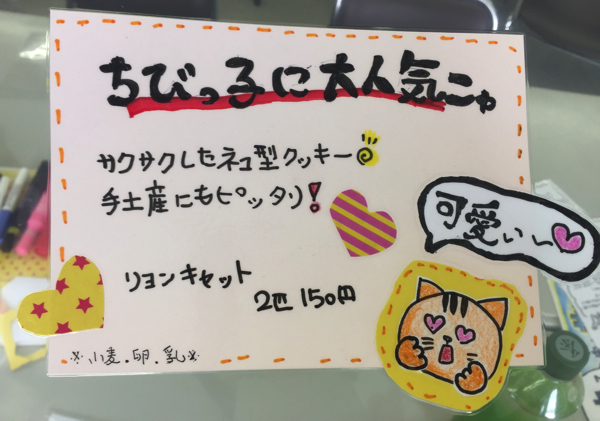 ちびっ子に大人気ニャ
サクサクしたネコ型クッキー
手土産にもピッタリ!
可愛ぃ〜
リヨンキャット
2匹 150円
※小麦.卵.乳※